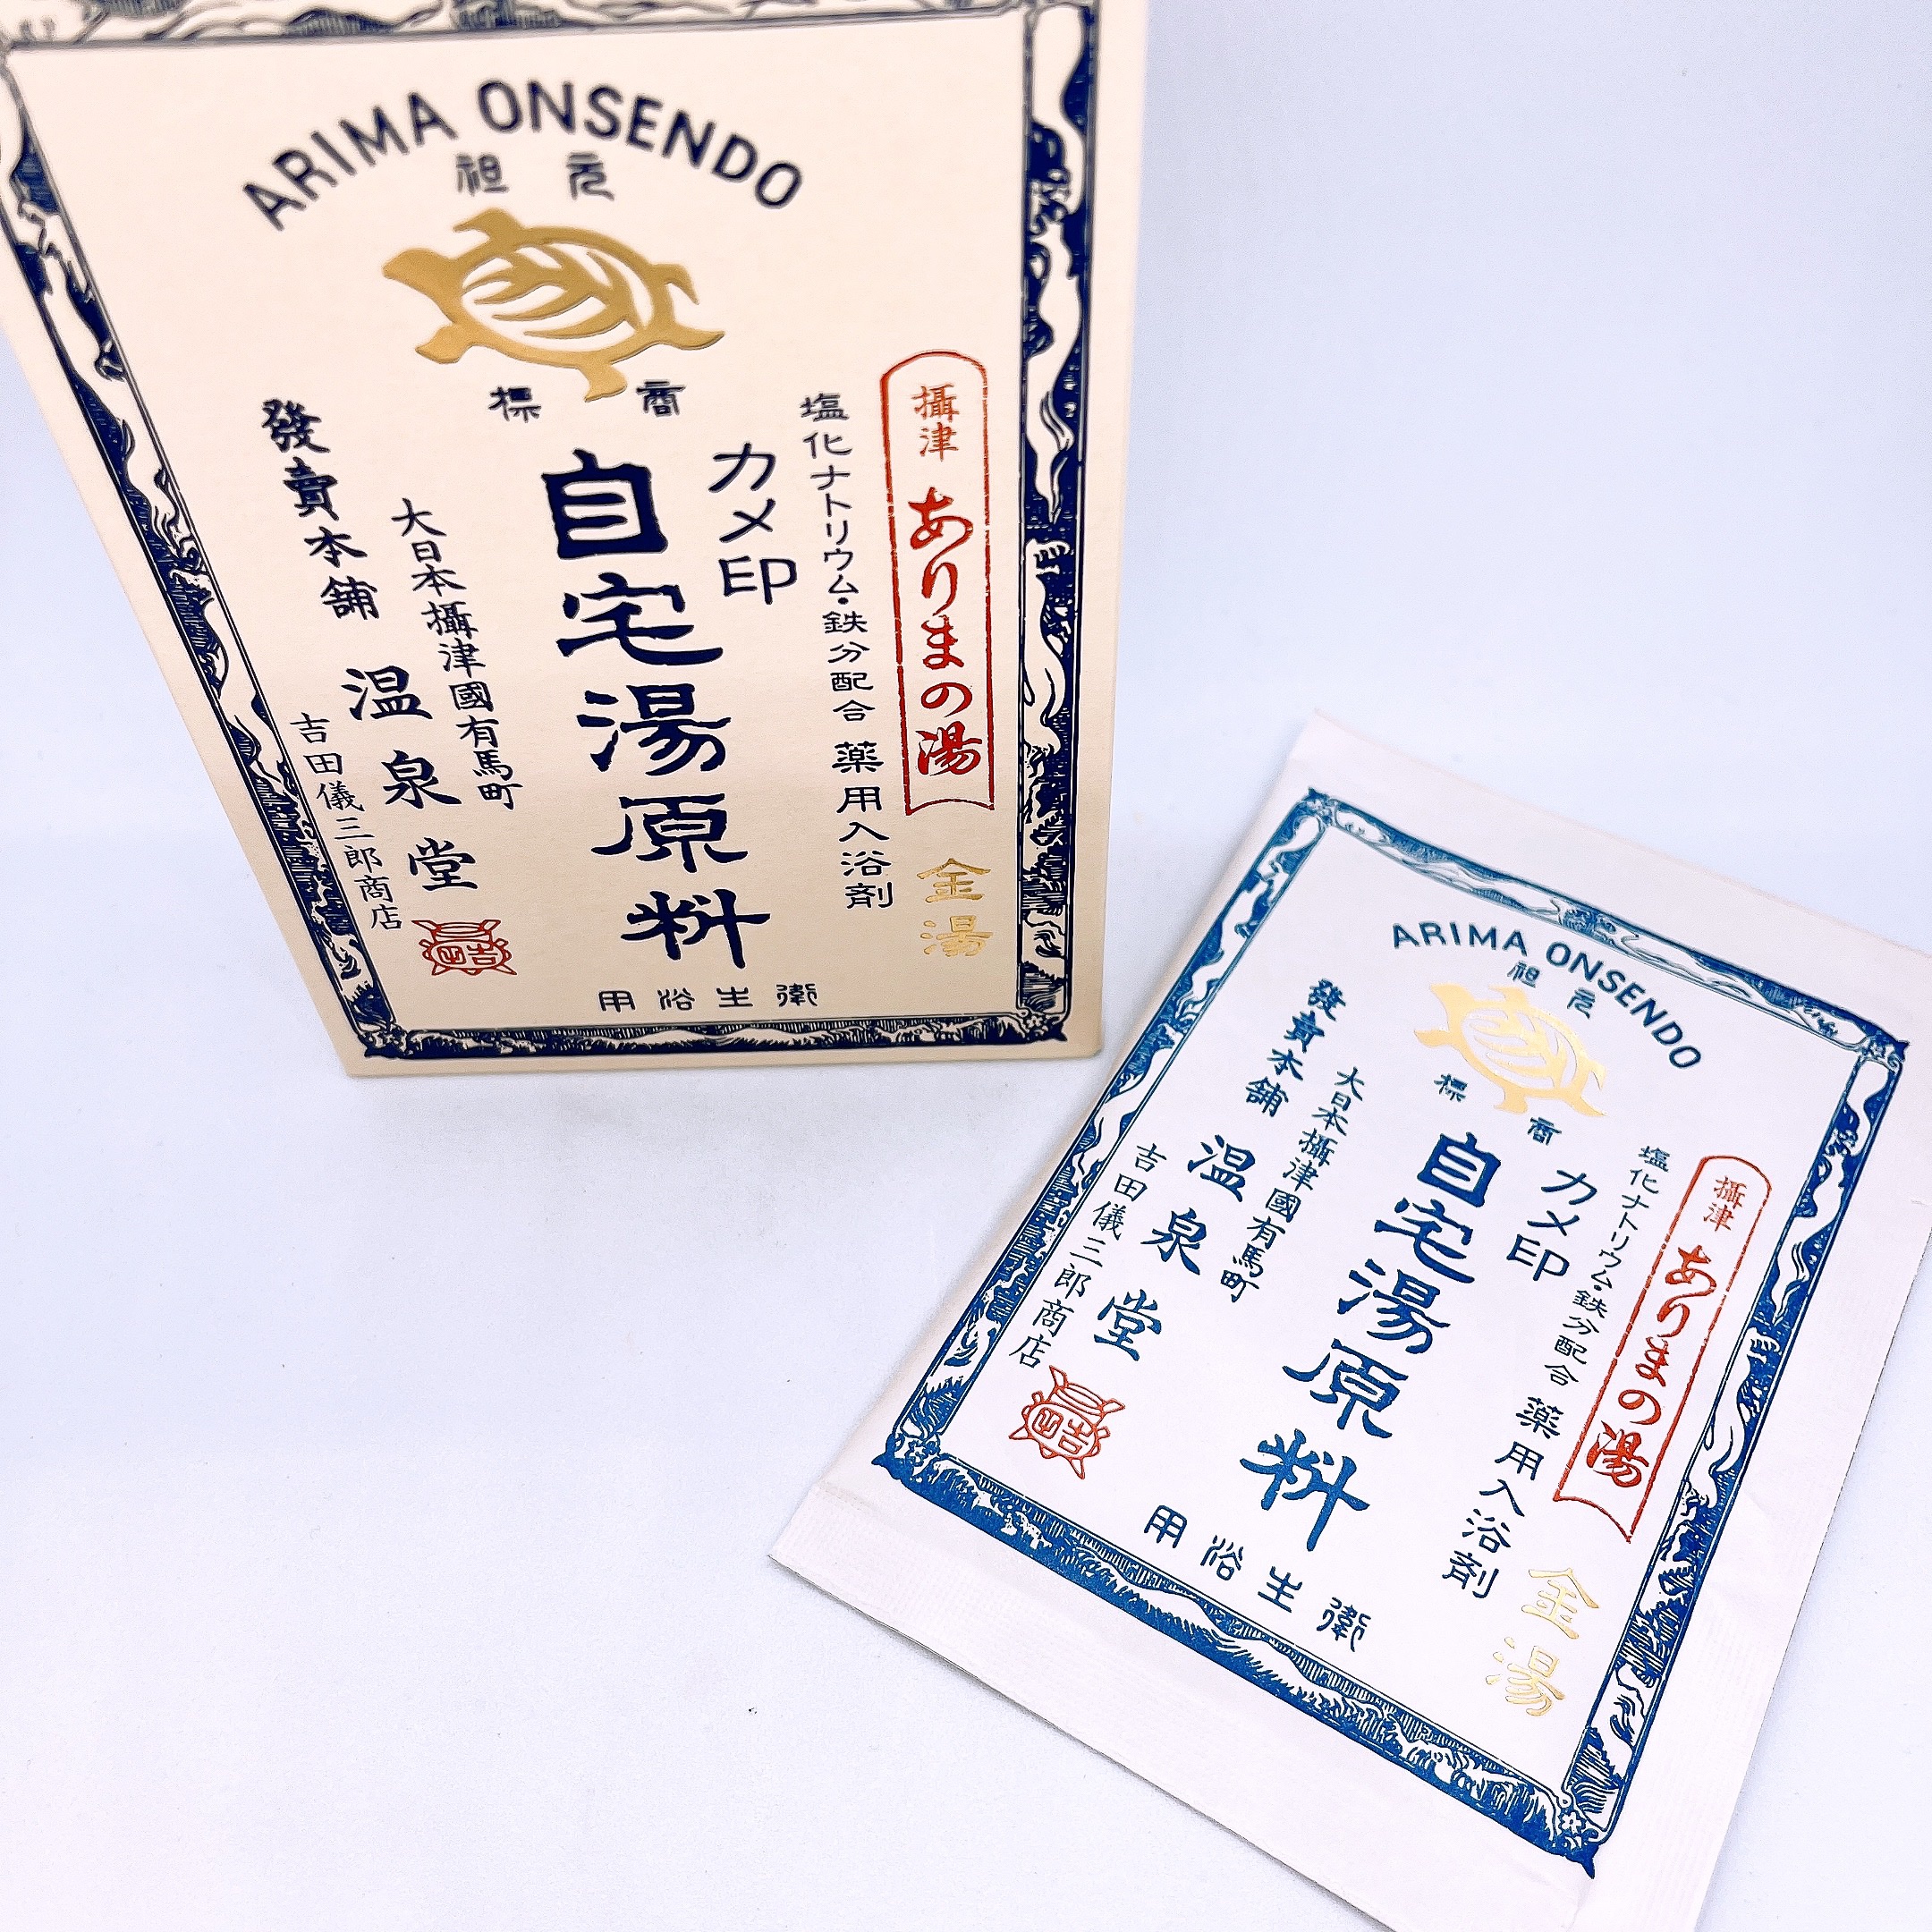 ARIMA ONSENDO
元祖
商標
攝津 ありまの湯
金湯
塩化ナトリウム・鉄分配合 薬用入浴剤
カメ印
自宅湯原料
大日本攝津國有馬町
發賣本舗 温泉堂
吉田儀三郎商店
衛生浴用
ARIMA ONSENDO
元祖
商標
攝津 ありまの湯
金湯
塩化ナトリウム・鉄分配合 薬用入浴剤
カメ印
自宅湯原料
大日本攝津國有馬町
發賣本舗 温泉堂
吉田儀三郎商店
衛生浴用